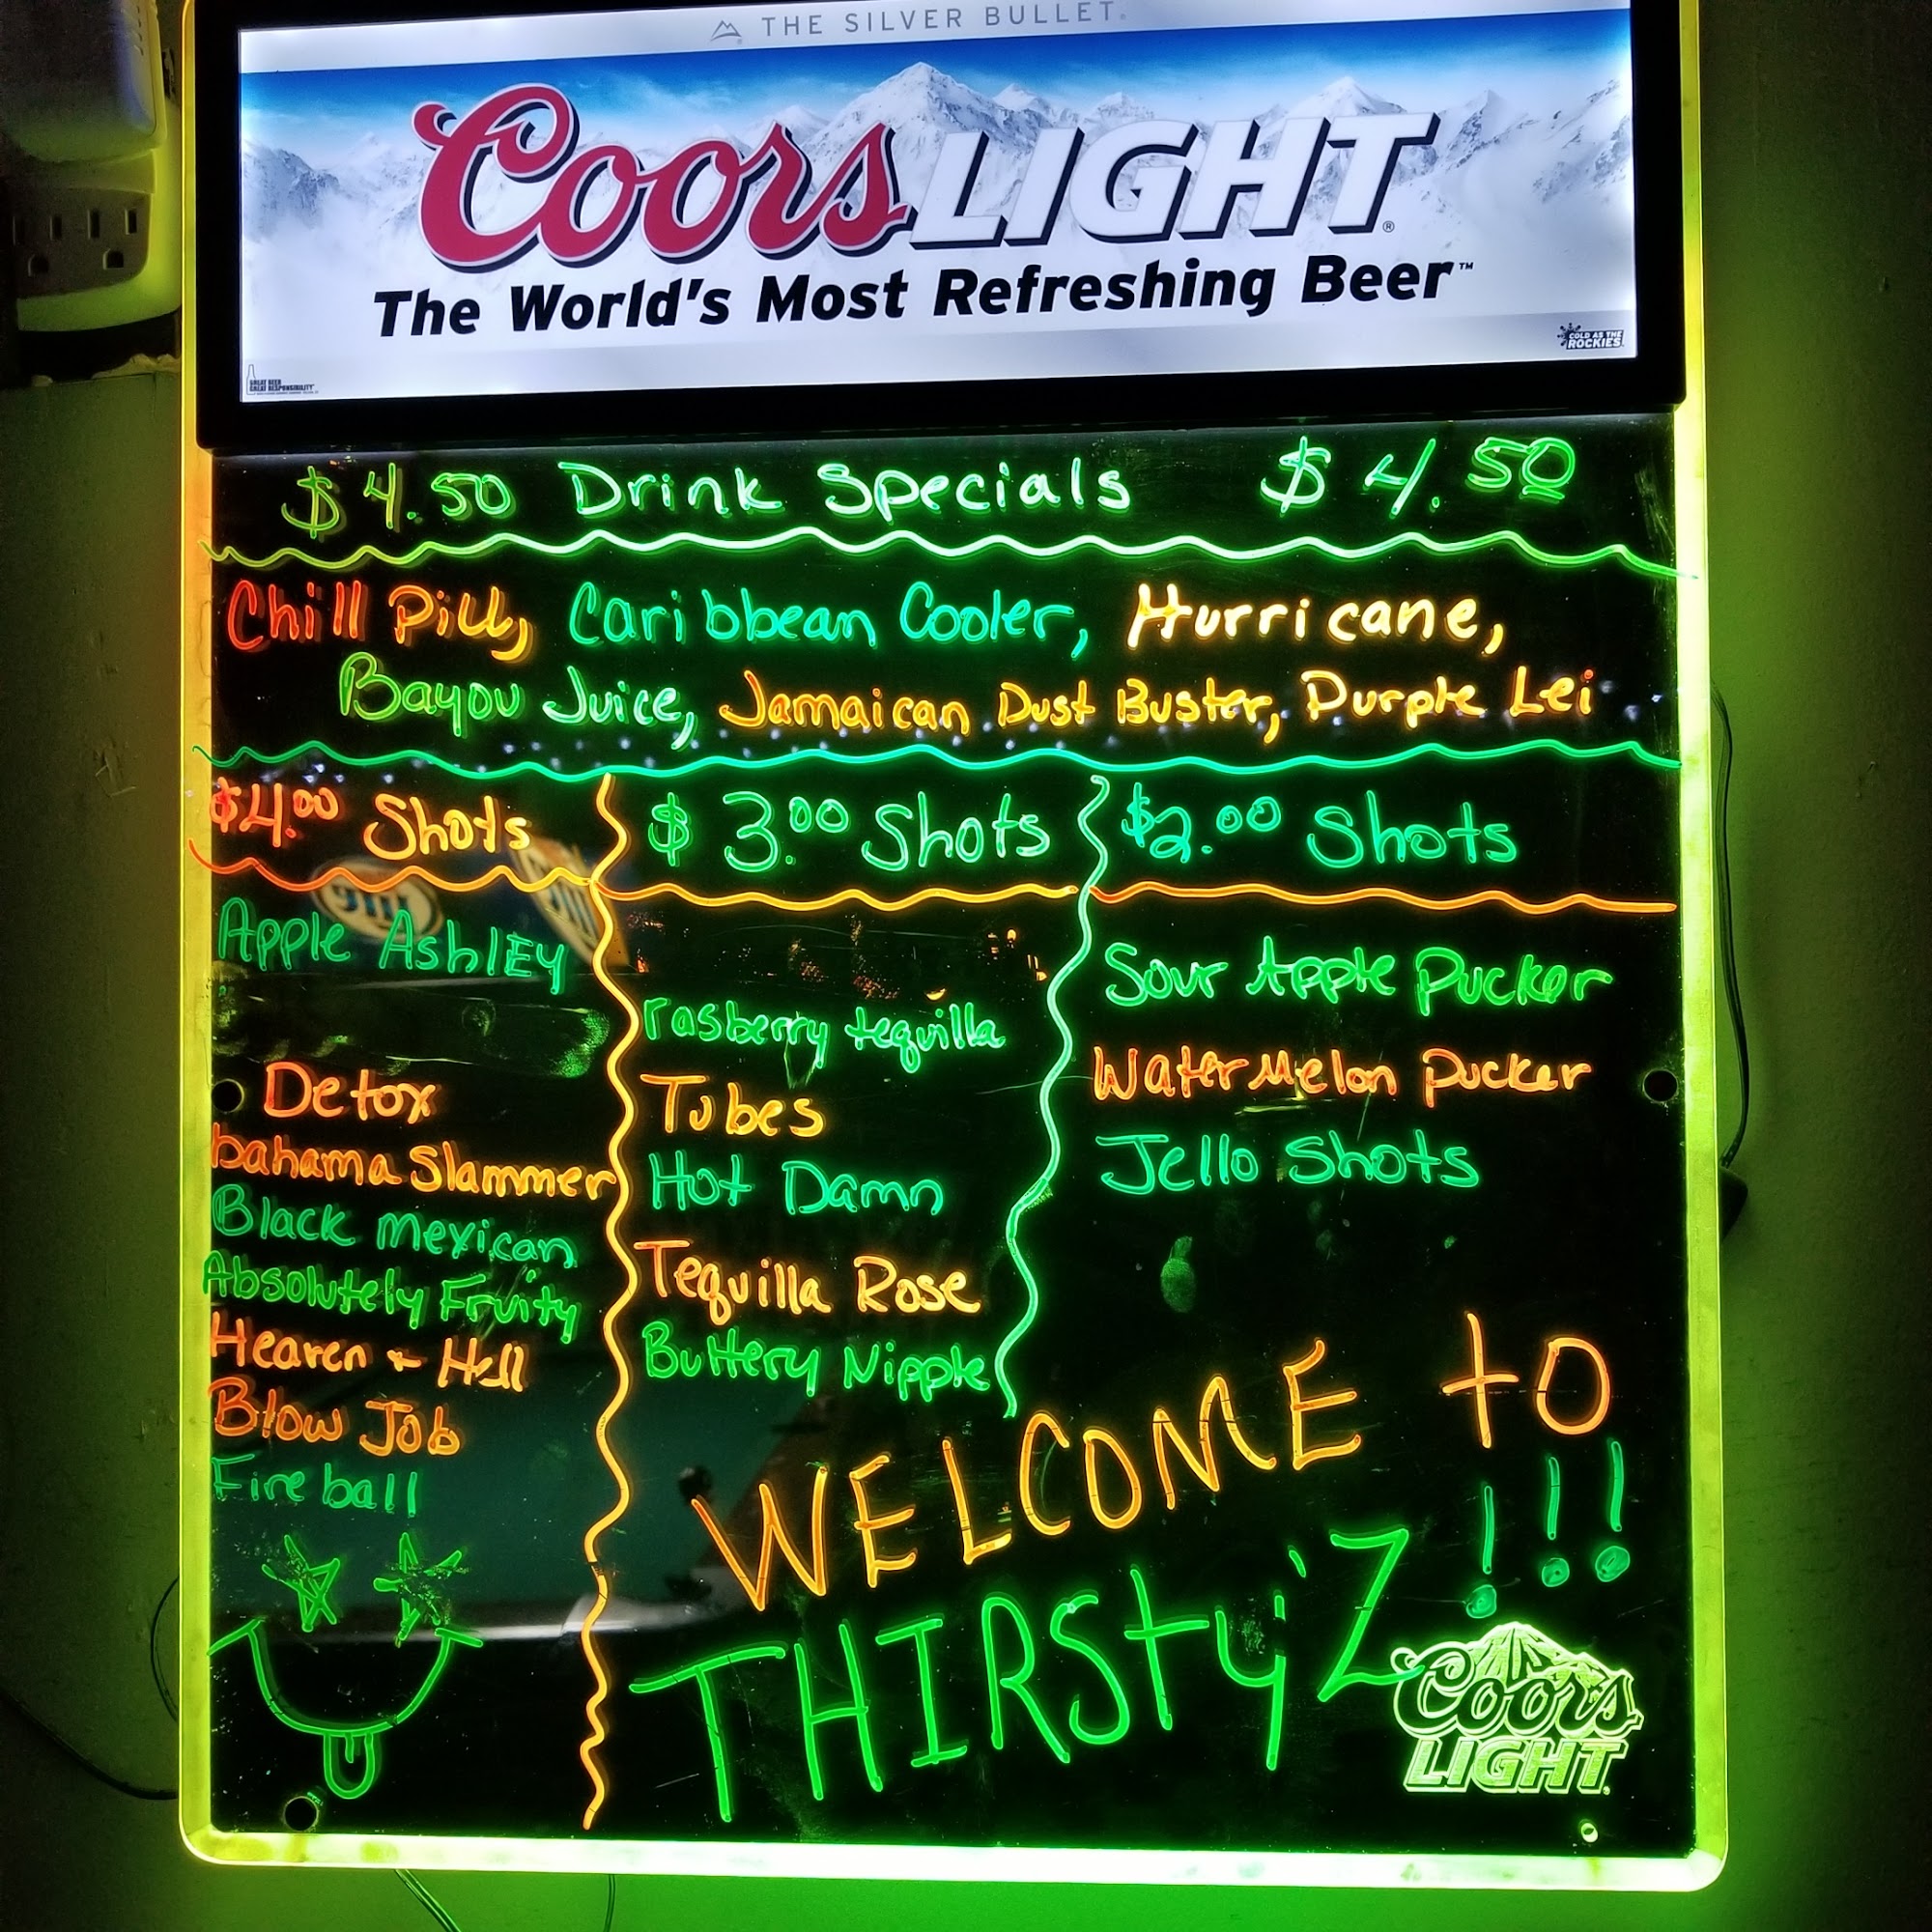 THE SILVER BULLET
Coors LIGHT
The World's Most Refreshing Beer™
COLD AS THE
ROCKIES
GREAT BEER
GREAT RESPONSIBILITY
$4.50 Drink Specials $4.50
Chill Pill, Caribbean Cooler, Hurricane,
Bayou Juice, Jamaican Dust Buster, Purple Lei
$4.00 Shots
Apple AshlEy
Detox
bahama Slammer
Black Mexican
Absolutely Fruity
Heaven + Hell
Blow Job
Fireball
$3.00 Shots
rasberry tequilla
Tubes
Hot Damn
Tequilla Rose
Buttery Nipple
$2.00 Shots
Sour Apple Pucker
WaterMelon Pucker
Jello Shots
WELCOME to
THIRSty'Z !!!
Coors
LIGHT